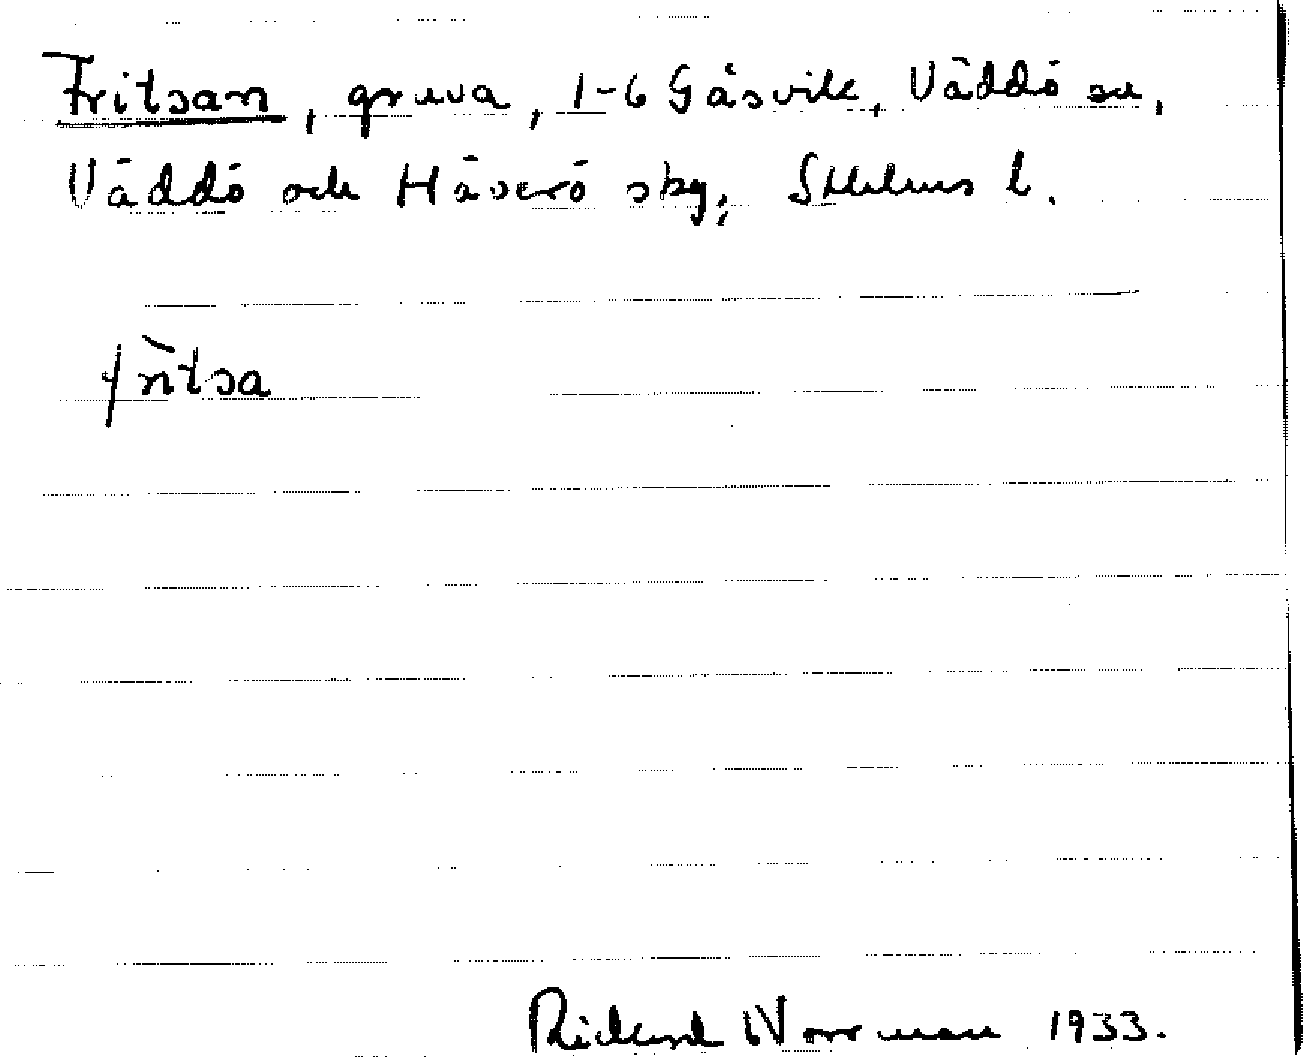 Fritsan, gruva, 1-6 Gåsvik, Väddö sn,
Väddö och Häverö sky; Sthlms l.
fritsa
Rickard Norrman 1933.